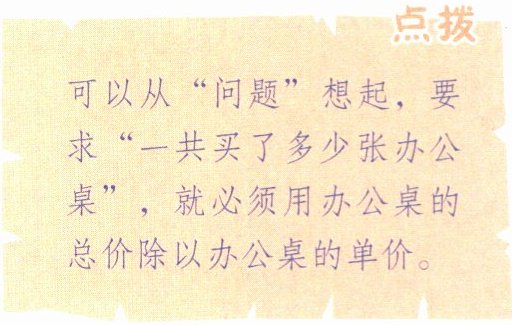 点拨
可以从“问题”想起，要
求“一共买了多少张办公
桌”，就必须用办公桌的
总价除以办公桌的单价。